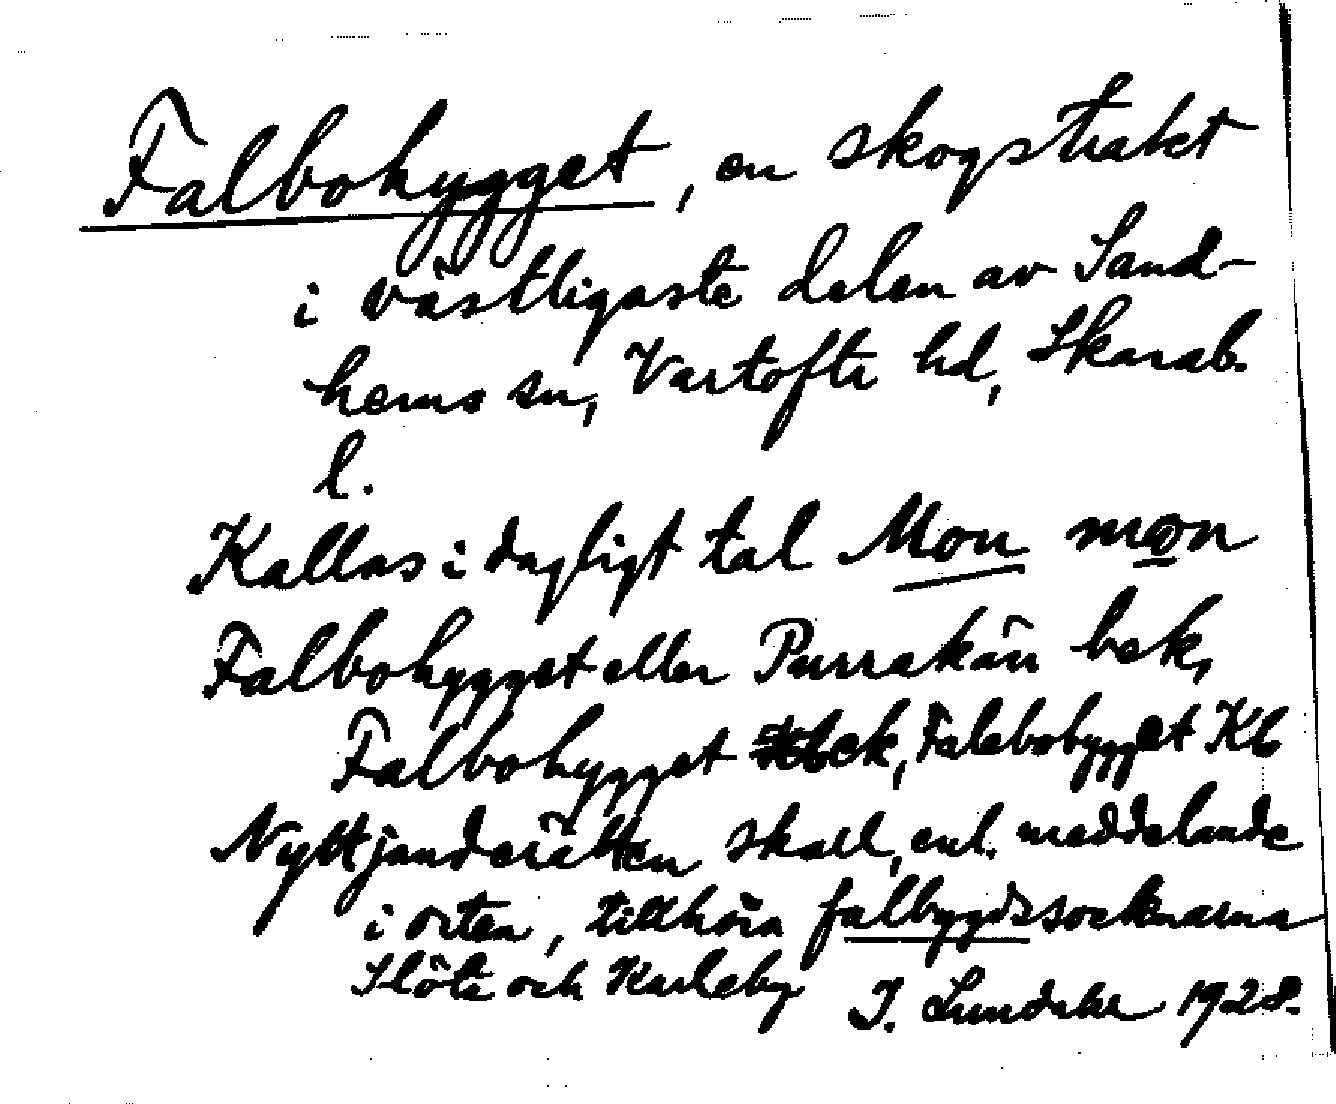 Falbohygget, en skogstrakt
i västligaste delen av Sand-
hems sn, Vartofta hd, Skarab.
l.
Kallas i dagligt tal Mon
Falbohygget eller Purrakärr bek,
Falbohygget bek, Falebohygget Kb
Nyttjanderätten skall, enl. meddelande
i orten, tillhöra falbygdssocknarna
Slöta och Karleby I. Lundahl 1928.